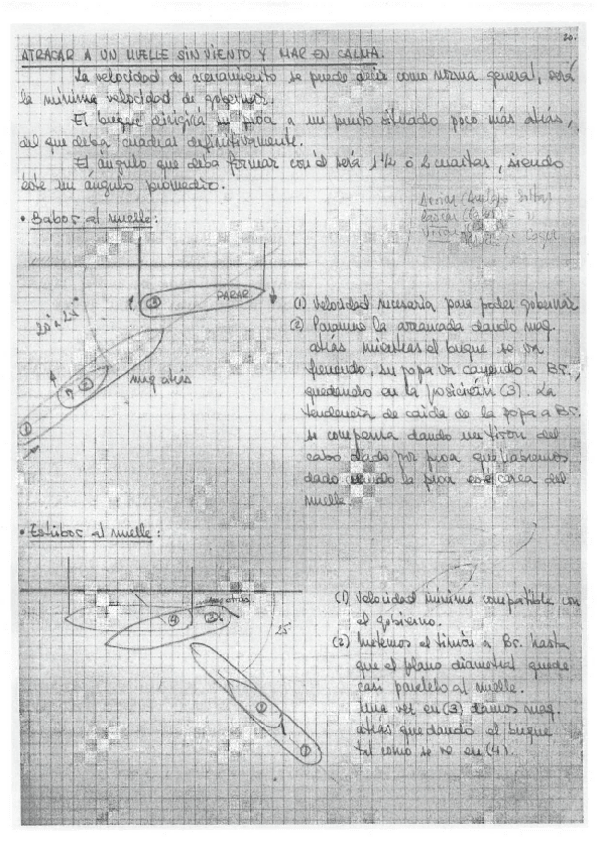 20.
ATRACAR A UN MUELLE SIN VIENTO Y MAR EN CALMA.
La velocidad de acercamiento se puede decir como norma general, será
la mínima velocidad de gobernar.
El buque dirigirá su proa a un punto situado poco más atrás,
del que deba cuadrar definitivamente.
El ángulo que deba formar con él será 1½ ó 2 cuartas, siendo
éste un ángulo promedio.
• Babor al muelle:
PARAR
(3)
20° a 25°
(2)
maq atrás
(1)
(1) Velocidad necesaria para poder gobernar
(2) Paramos la arrancada dando maq.
atrás mientras el buque se va
frenando, su popa va cayendo a Br.,
quedando en la posición (3). La
tendencia de caída de la popa a Br.
se compensa dando un tirón del
cabo dado por proa que habremos
dado cuando la proa esté cerca del
muelle.
• Estribor al muelle:
(4) (3)
25°
(2)
(1)
(1) Velocidad mínima compatible con
el gobierno.
(2) Metemos el timón a Br. hasta
que el plano diametral quede
casi paralelo al muelle.
Una vez en (3) damos maq.
atrás quedando el buque
tal como se ve en (4).